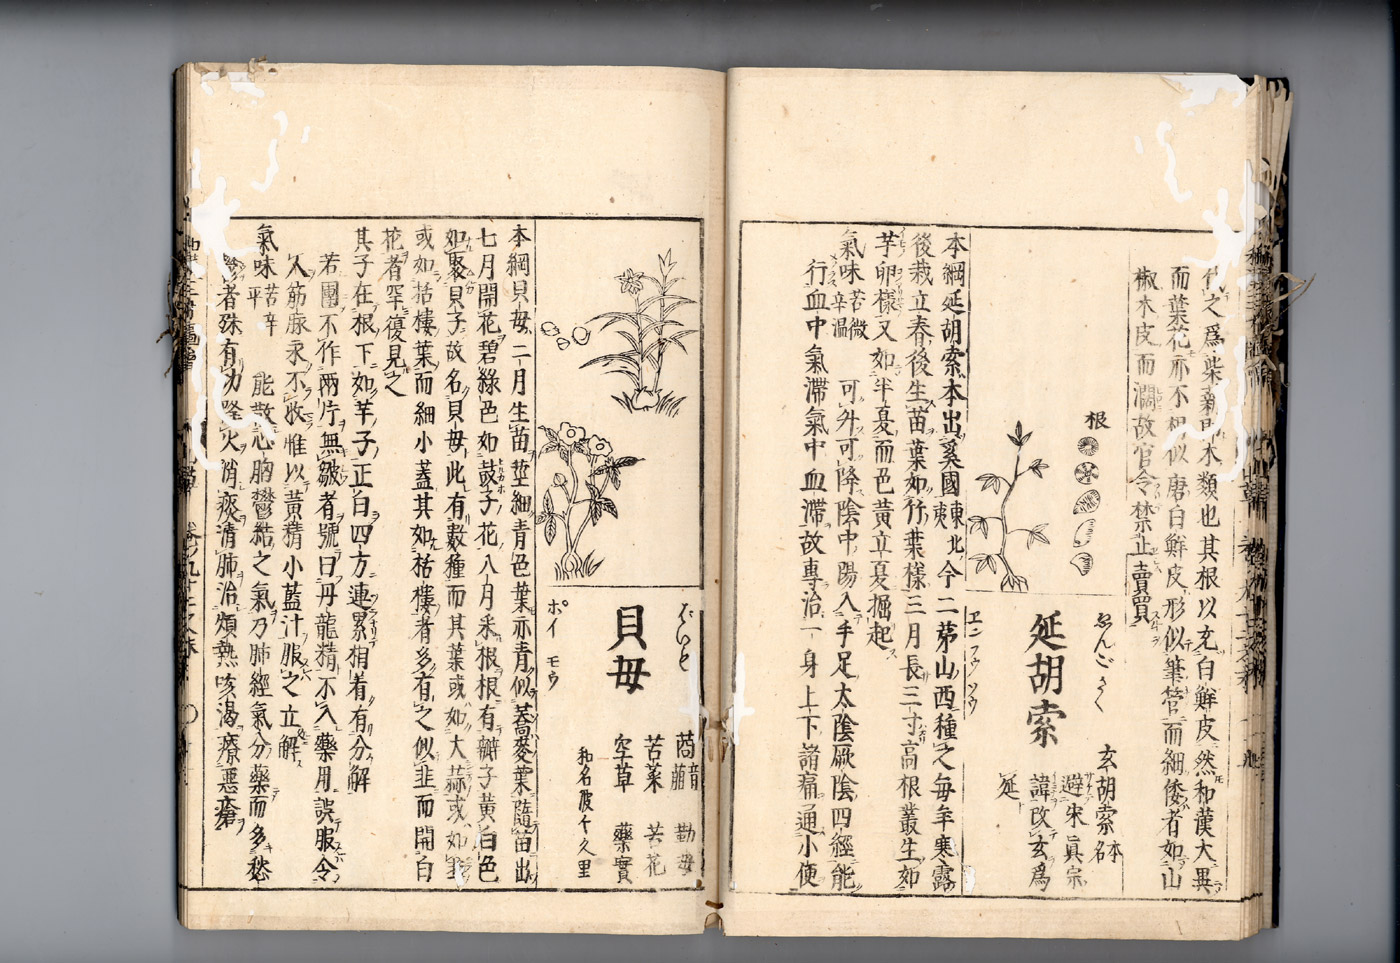 代之爲柴薪即木類也其根以充白鮮皮然和漢大異
而葉花亦不相似唐白鮮皮形似筆管而細倭者如山
椒木皮而濶故官令禁止賣買
根
ゑんごさく
延胡索
エンフウソウ
玄胡索 本名
避宋眞宗
諱改玄爲
延
本綱延胡索本出奚國 東北夷 今二茅山西種之毎年寒露
後栽立春後生苗葉如竹葉樣三月長三寸高根叢生如
芋卵樣又如半夏而色黃立夏掘起
氣味 苦微辛溫 可升可降陰中陽入手足太陰厥陰四經能
行血中氣滯氣中血滯故專治一身上下諸痛通小便
ばいも
貝母
ポイ モウ
苘 音萌 勤母
苦菜 苦花
空草 藥實
和名 波々久里
本綱貝母二月生苗莖細青色葉亦青似蕎麥葉隨苗出
七月開花碧綠色如鼓子花八月采根根有瓣子黃白色
如聚貝子故名貝母此有數種而其葉或如大蒜或如
或如括樓葉而細小蓋其如栝樓者多有之似韭而開白
花者罕復見之
其子在根下如芋子正白四方連累相着有分解
若團不作兩片無皺者號曰丹龍精不入藥用誤服令
人筋脉永不收惟以黃精小藍汁服之立解
氣味 苦辛平 能散心胸鬱結之氣乃肺經氣分藥而多愁
鬱者殊有功降火消痰清肺治煩熱咳渴療惡瘡